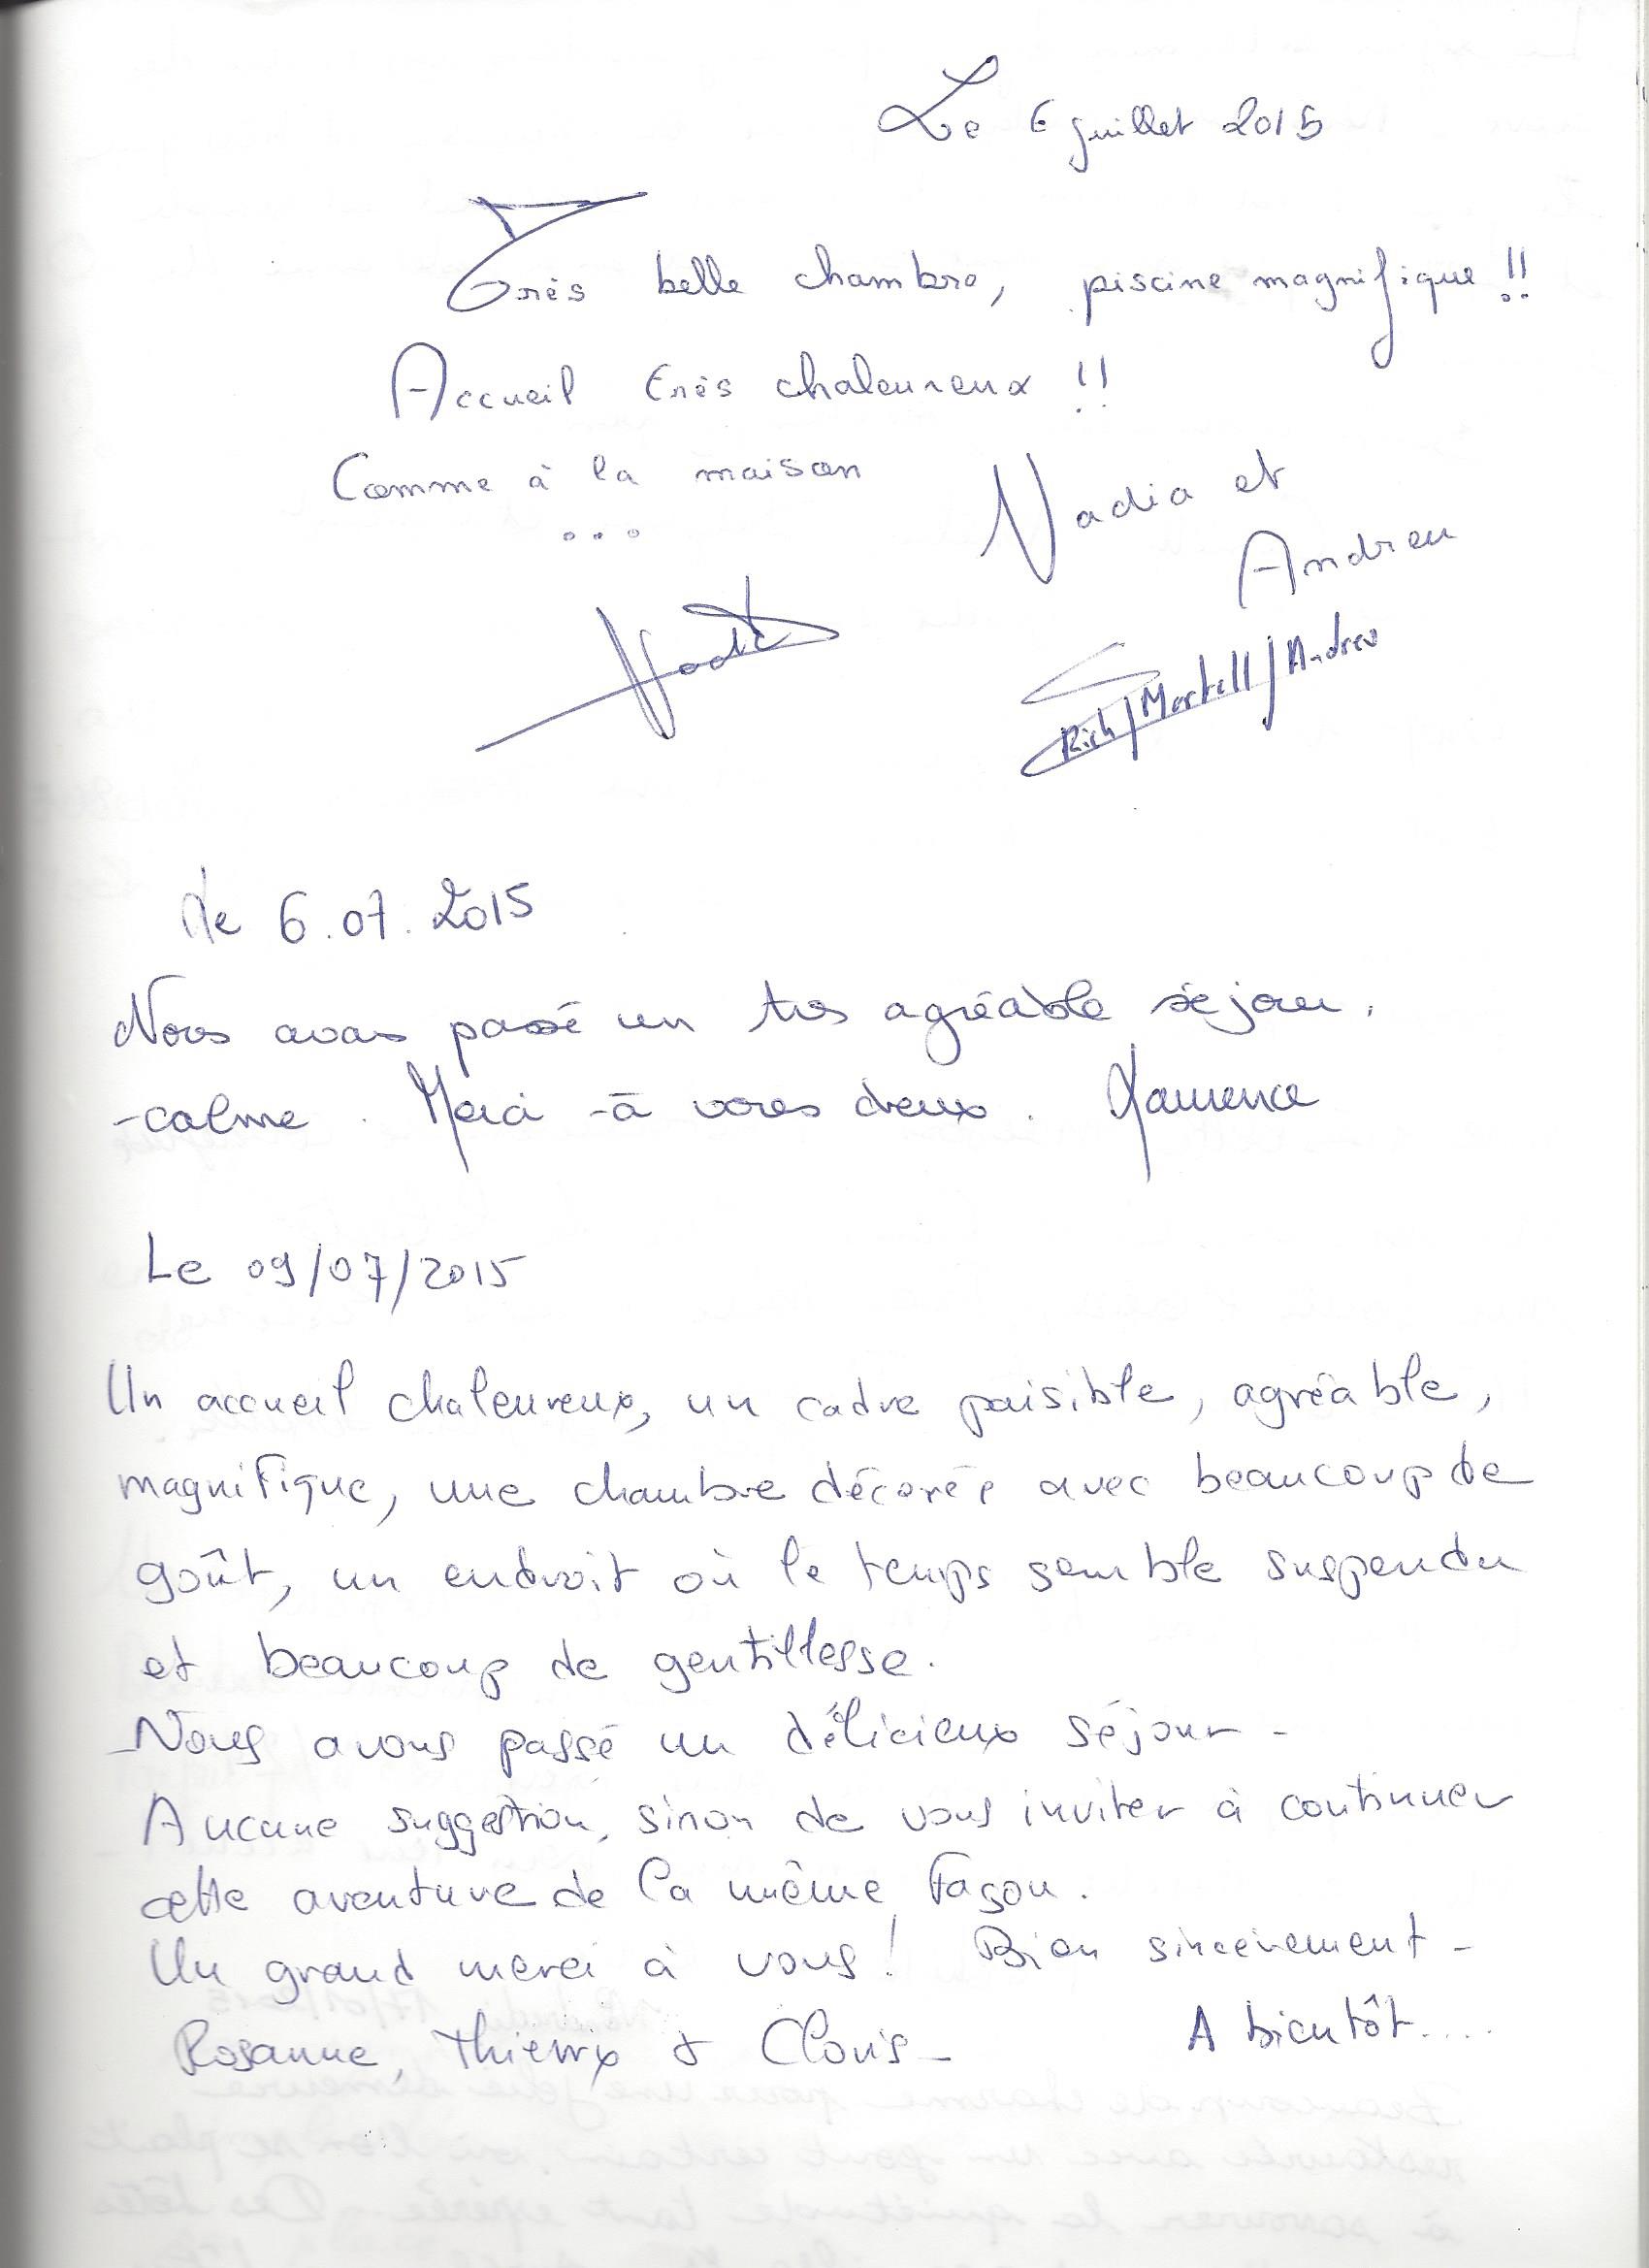 Le 6 juillet 2015
Très belle chambre, piscine magnifique !!
Accueil très chaleureux !!
Comme à la maison
...
Nadia et
Andreu
Nadia
Rich/Martell/Andreu
Le 6.07.2015
Nous avons passé un très agréable séjour.
calme. Merci à vous deux. Laurence
Le 09/07/2015
Un accueil chaleureux, un cadre paisible, agréable,
magnifique, une chambre décorée avec beaucoup de
goût, un endroit où le temps semble suspendu
et beaucoup de gentillesse.
Nous avons passé un délicieux séjour -
Aucune suggestion, sinon de vous inviter à continuer
cette aventure de la même façon.
Un grand merci à vous ! Bien sincèrement -
Rosanne, Thierry & Clovis - A bientôt....